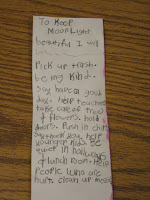 To Keep
MoonLight
beautiful I will
Pick up trash.
being kind.
Say have a good
day. help teachers
take care of trees
& flowers. hold
doors. Push in chairs
Say thank you. help
younger kids be
quiet in hallways
& lunch room. Help
People who are
hurt. clean up messes